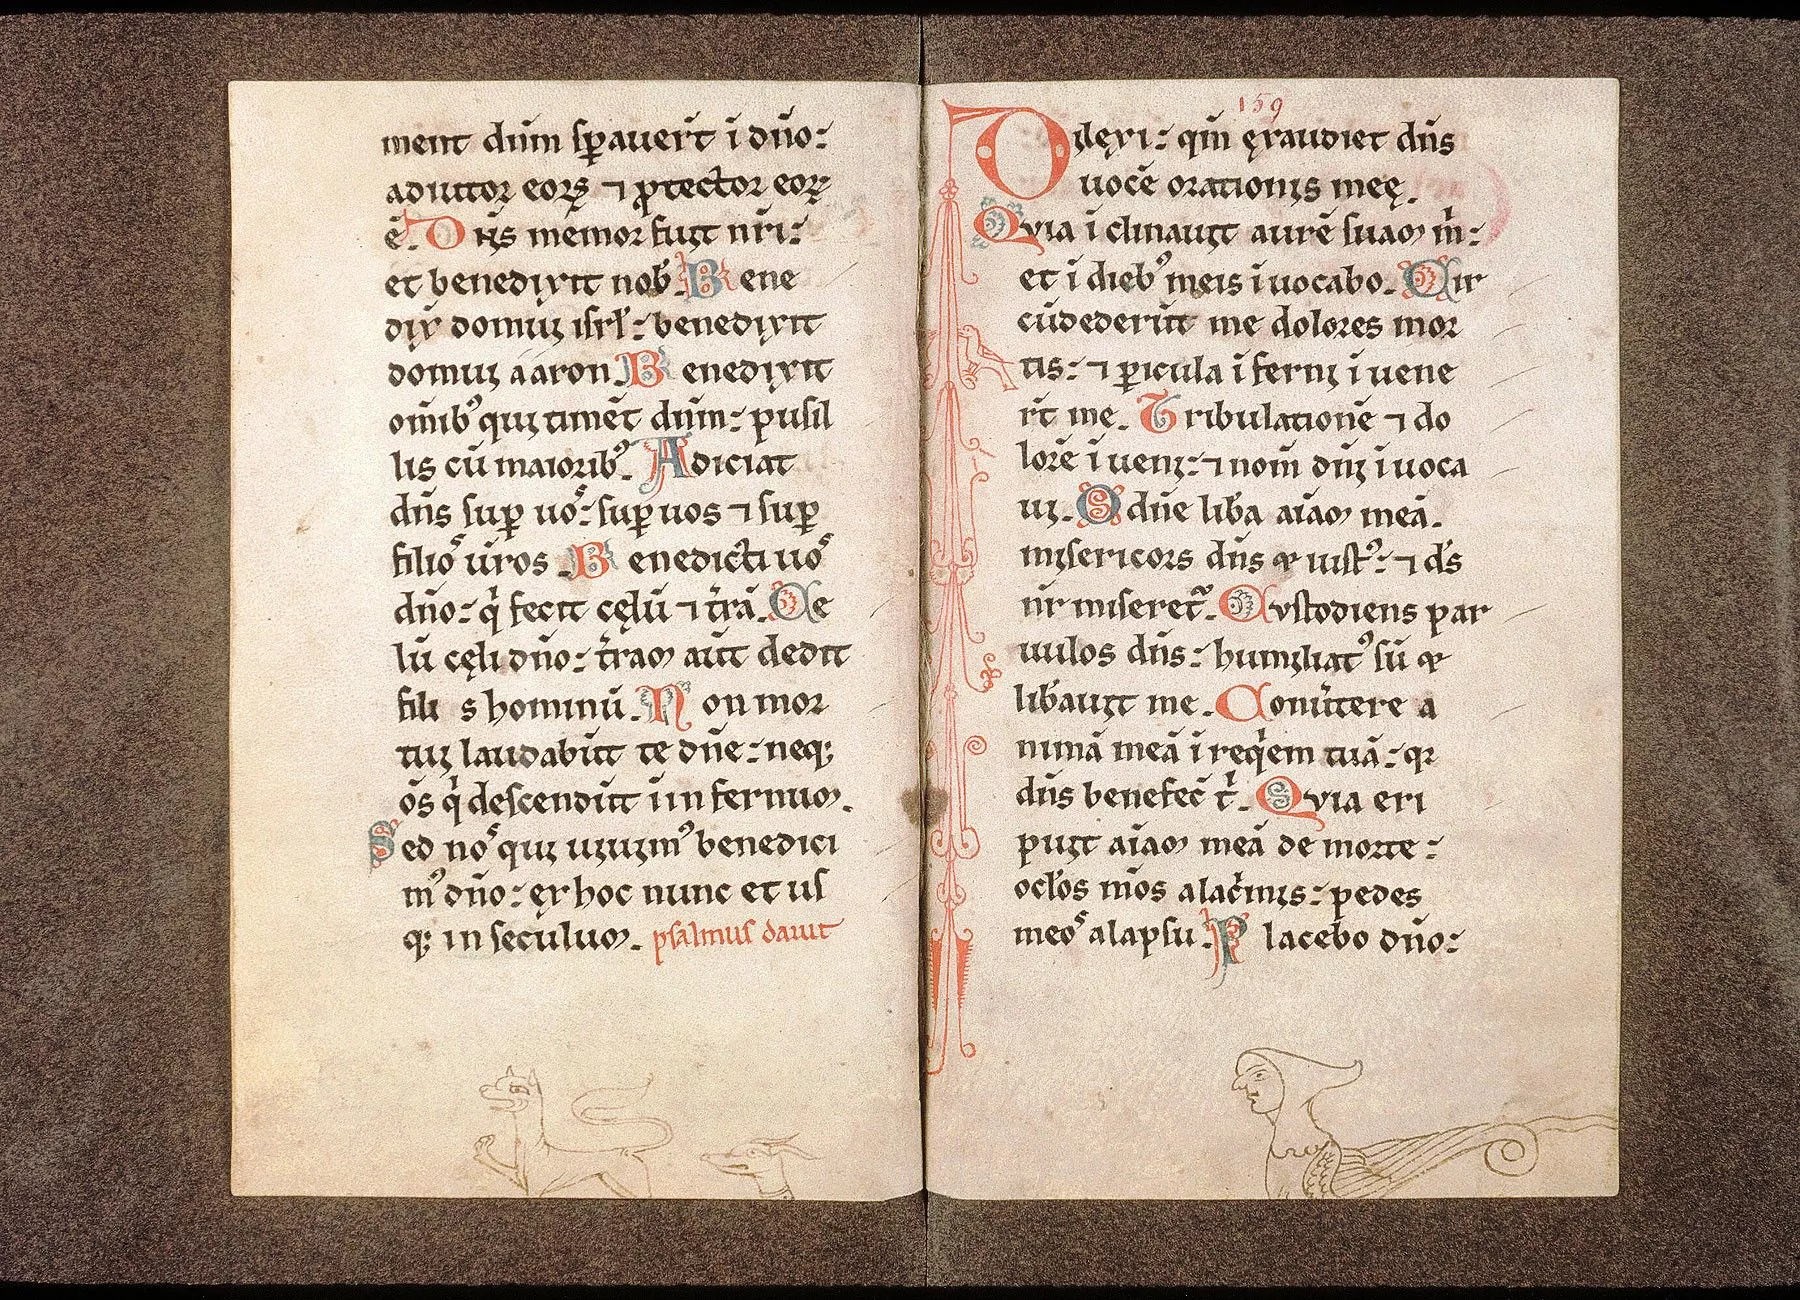 ment dūm sꝑauert̄ ī dño:
adiutor eorꝫ ⁊ ꝓtector eoꝝ
ē. Dñs memor fuit nr̄i:
et benedixit nob̄. Bene
dix̄ domui isrl̄: benedixit
domui aaron. Benedixit
om̄ibꝰ qui timēt dūm: pusil
lis cū maioribꝰ. Adiciat
dñs suꝑ uoˢ: suꝑ uos ⁊ suꝑ
filioˢ ūros. Benedicti uoˢ
dño: q̇ fecit cęlū ⁊ t̄rā. Ce
lū cęli dño: t̄ram aūt dedit
filiis hominū. Non mor
tui laudabūt te dñe: neqꝫ
ōs q̇ descendūt ī infernum.
Sed noˢ qui uiuimꝰ benedici
mꝰ dño: ex hoc nunc et us
qꝫ in seculum. psalmus dauit
159
Dilexi: qm̄ exaudiet dñs
uocē orationis meę.
Quia īclinauit aurē suam m̄:
et ī diebꝰ meis īuocabo. Cir
cūdederūt me dolores mor
tis: ⁊ ꝑicula īferni īuene
rt̄ me. Tribulationē ⁊ do
lorē īueni: ⁊ nom̄ dñi īuoca
ui. O dñe lib̄a aīam meā.
misericors dñs et iustꝰ: ⁊ d̄s
nr̄ miseret᷑. Custodiens par
uulos dñs: humiliatꝰ sū et
lib̄auit me. Conūtere a
nimā meā ī reqēm tuā: qr
dñs benefec̄ t̄. Quia eri
puit aīam meā de morte:
oclōs m̄os alac̄imis: pedes
meoˢ alapsu. Placebo dño: